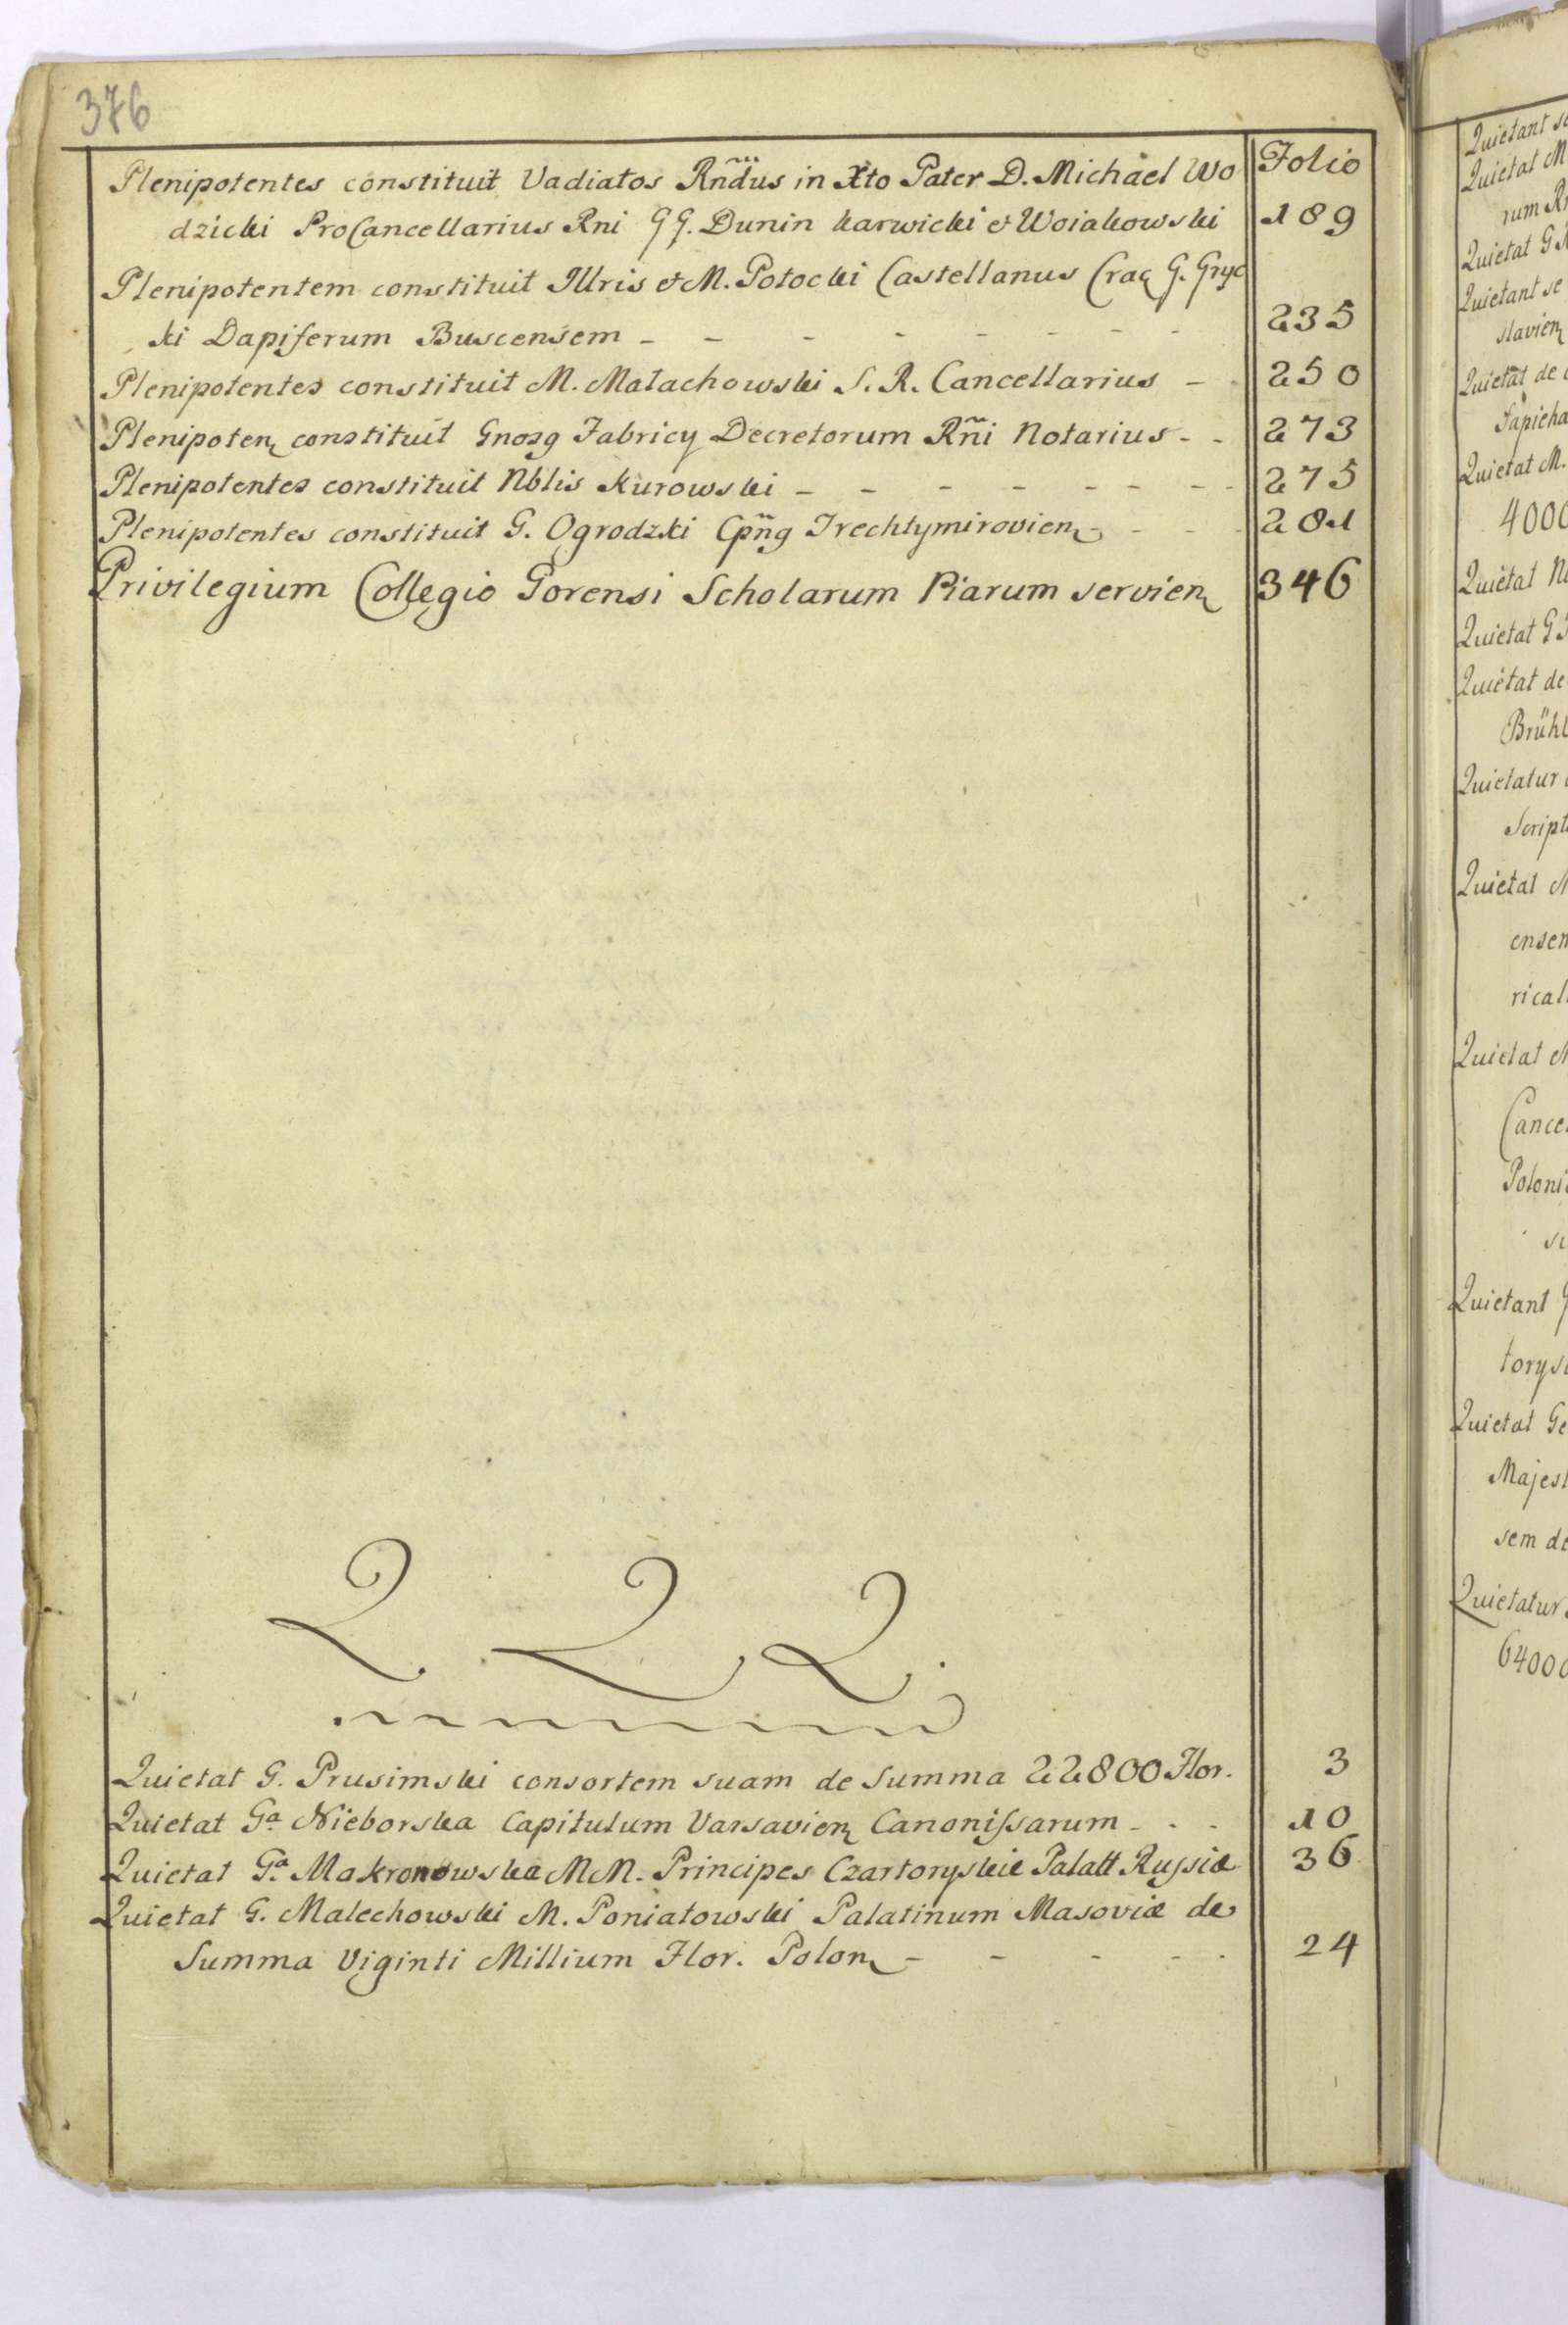 376
Plenipotentes constituit Vadiatos Rñdus in Xto Pater D. Michael Wo Folio
dzicki ProCancellarius Rni GG. Dunin Karwicki et Woiakowski 189
Plenipotentem constituit Illris et M. Potocki Castellanus Crac G. Gryc
ki Dapiferum Buscensem - - - - - - - 235
Plenipotentes constituit M. Małachowski S. R. Cancellarius - - 250
Plenipoten constituit Gnosg Fabricy Decretorum Rñi Notarius - - 273
Plenipotentes constituit Nblis Kurowski - - - - - - - - 275
Plenipotentes constituit G. Ogrodzki Cpñg Trechtymirovien - - - 281
Privilegium Collegio Gorensi Scholarum Piarum servien 346
Q. Q. Q.
Quietat G. Prusimski consortem suam de Summa 22800 Flor. 3
Quietat Ga Nieborska Capitulum Varsavien Canonissarum - - - 10
Quietat Ga Makronowska MM. Principes Czartoryskie Palatt Russiæ 36
Quietat G. Malechowski M. Poniatowski Palatinum Masoviæ de
Summa Viginti Millium Flor. Polon - - - - - 24
Quietant se
Quietat M
rum R
Quietat G
Quietant se
slavien
Quietat de
Sapieha
Quietat M.
4000
Quietat N
Quietat G
Quietat de
Brühl
Quietatur
Script
Quietat
ensem
rical
Quietat
Cancel
Poloni
Quietant
torys
Quietat Ge
Majest
sem de
Quietatur
64000